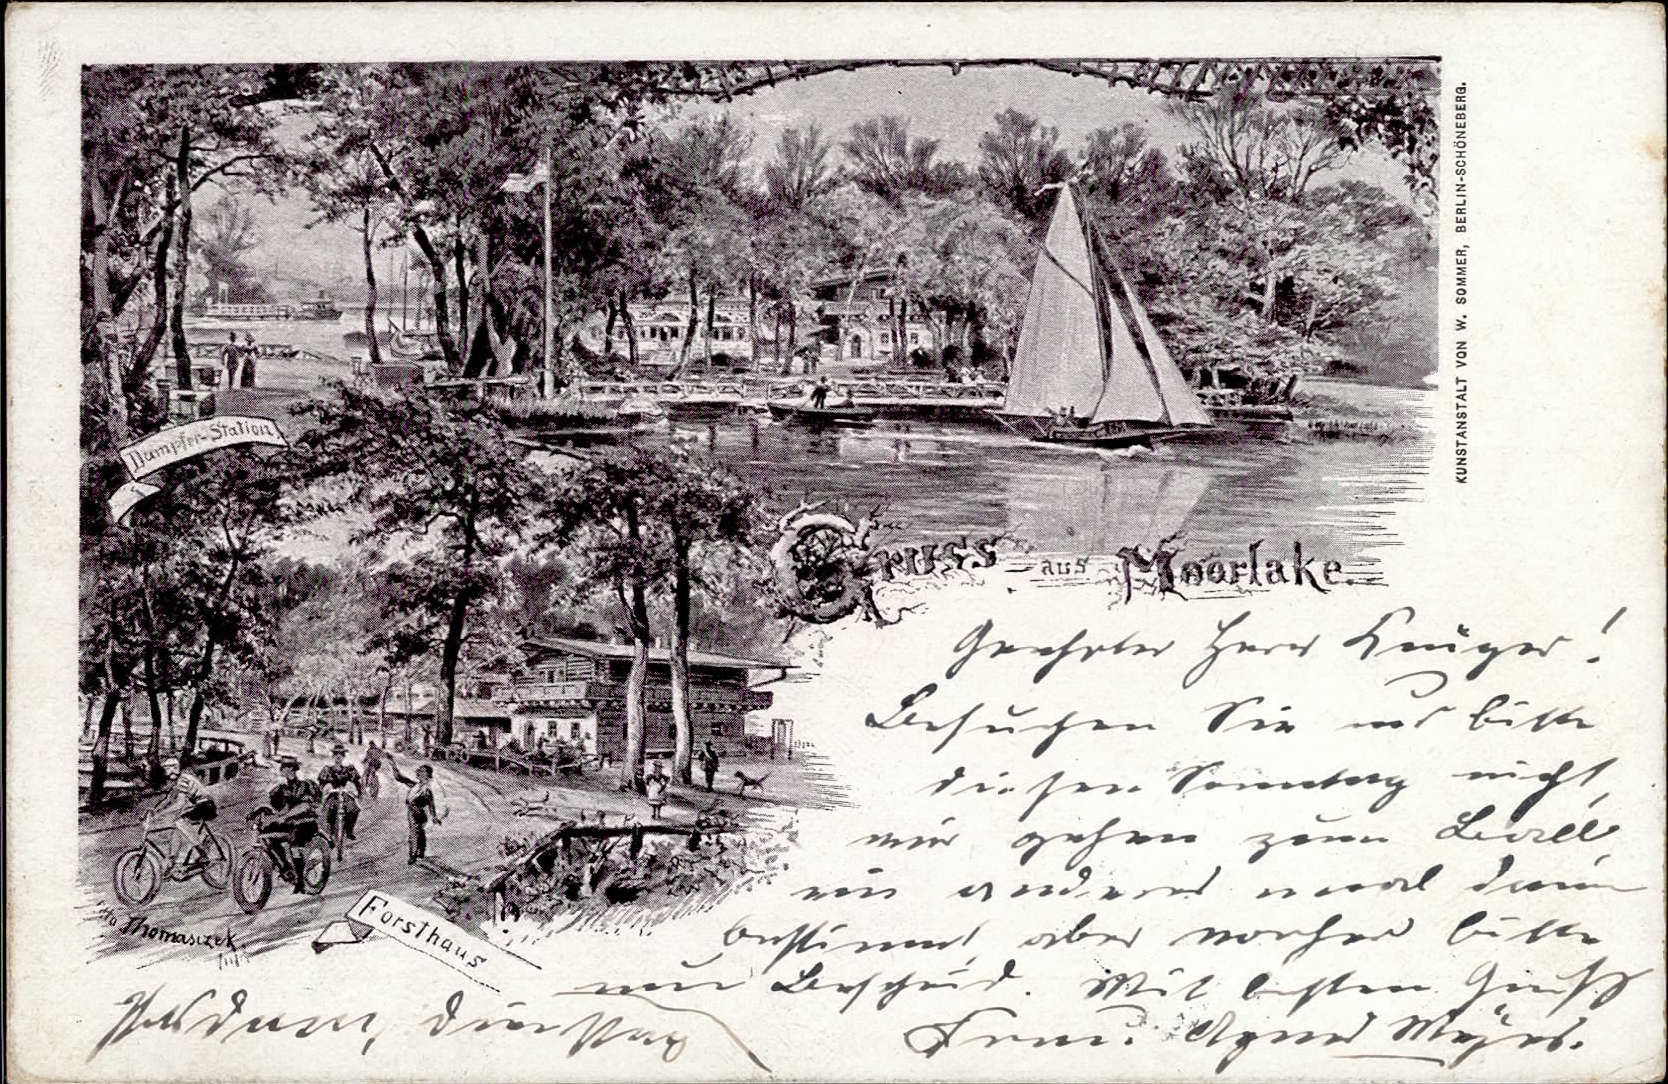 KUNSTANSTALT VON W. SOMMER, BERLIN-SCHÖNEBERG.
Dampfer-Station
Gruss aus Moorlake.
Forsthaus
Thomasczek
Geehrter Herr Krüger!
Besuchen Sie uns bitte
diesen Sonntag nicht,
wir gehen zum Ball,
ein anderes mal dann
bestimmt, aber vorher bitte
um Bescheid. Mit besten Gruß
Frau Agnes Meyer.
Potsdam, Dienstag